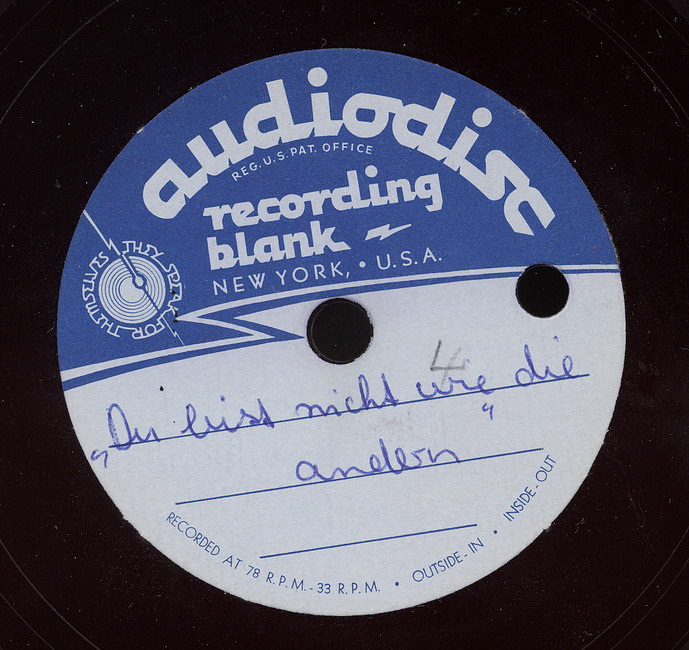 audiodisc
REG. U.S. PAT. OFFICE
recording
blank
NEW YORK, • U.S.A.
THEY SPEAK FOR THEMSELVES
4
„Du bist nicht wie die
andern"
RECORDED AT 78 R.P.M.-33 R.P.M. • OUTSIDE-IN • INSIDE-OUT